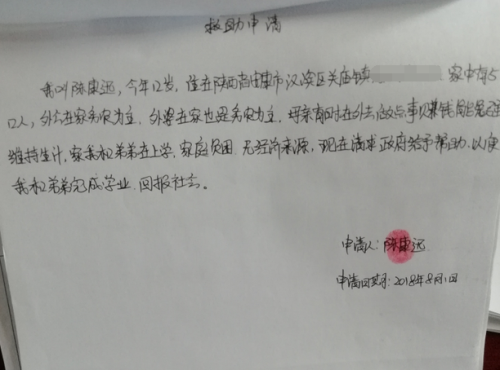 救助申请
我叫陈康远，今年12岁，住在陕西省安康市汉滨区关庙镇 家中有5
口人，外公在家务农为主，外婆在家也是务农为主，母亲有时在外去做点事只赚钱
维持生计，家我和弟弟在上学，家庭贫困 无经济来源，现在请求政府给予帮助，以使
我和弟弟完成学业，回报社会。
申请人：陈康远
申请日期：2018年8月1日